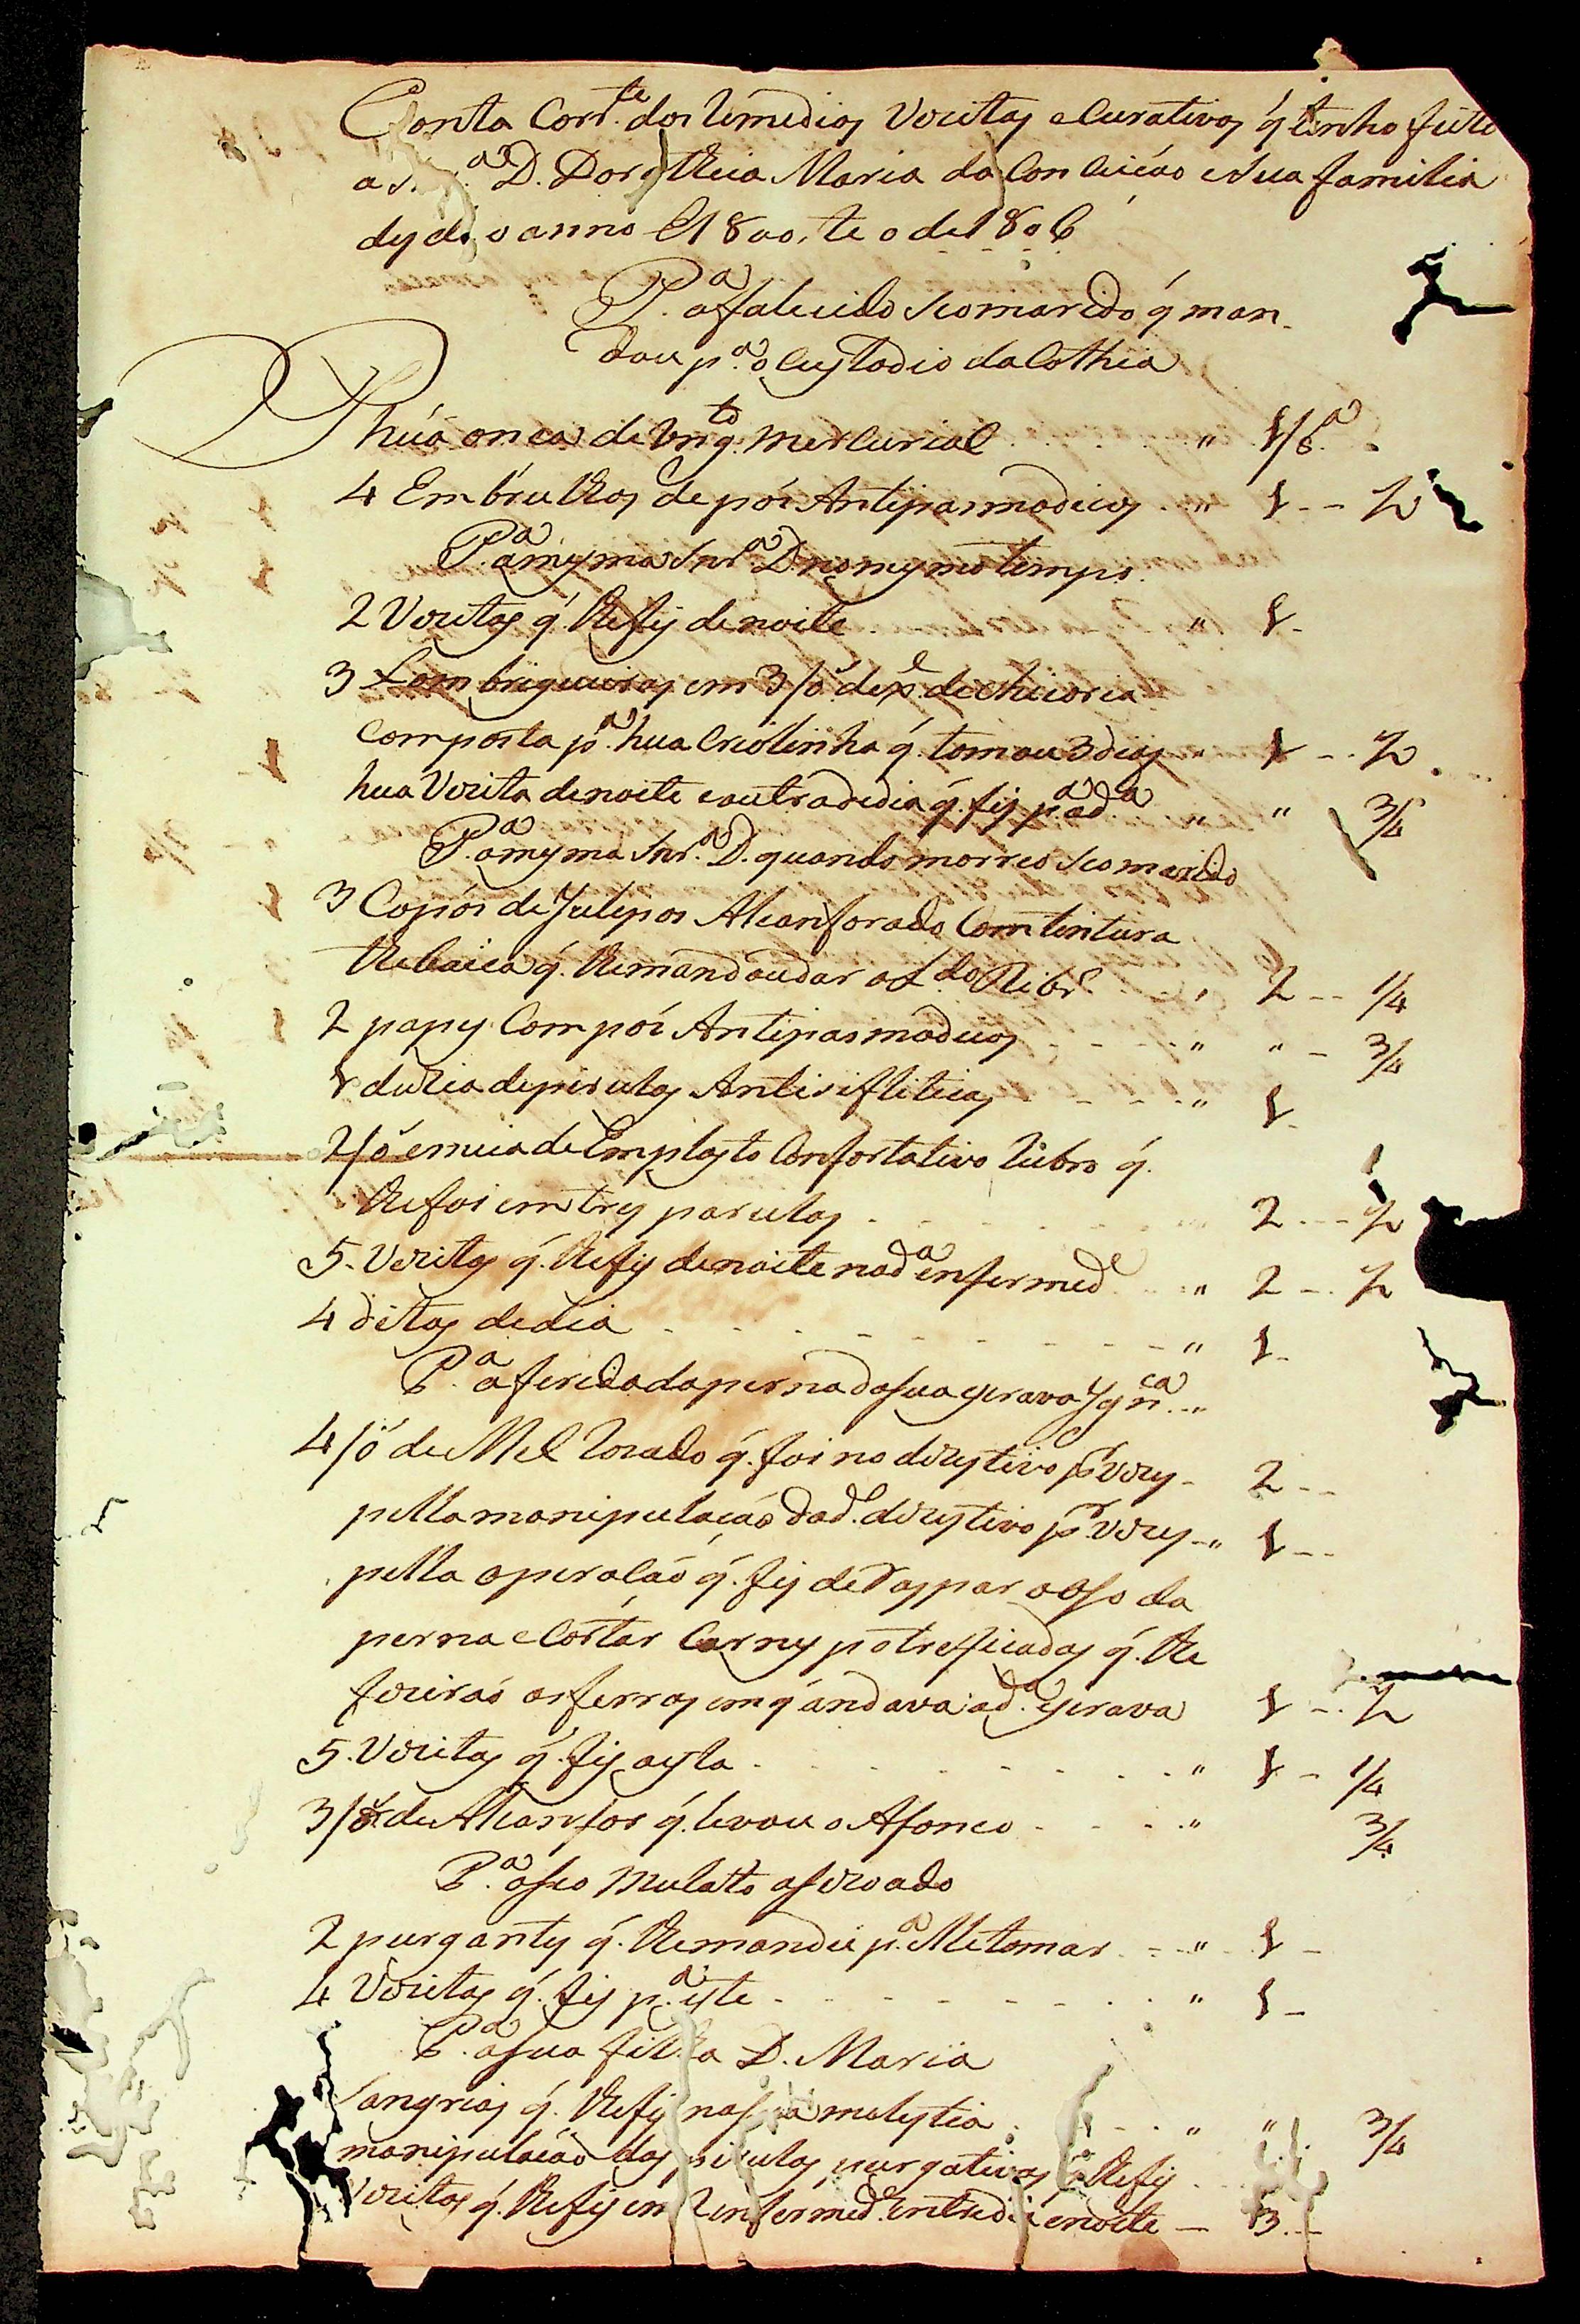 Conta Corr.te dos remedios Vizitas e Curativos q' tenho feito
a D. Dorotheia Maria da Conceicáo e Sua familia
desde o anno de 1800, te o de 1806
P.a o falecido Seo marido q' man-
dou p.a o Custodio da Cothia
P húa onca de Vng.to Mercurial " 1/8.a
4 Embrulhos de pós Antispasmodicos " 1 -- 1/2
P.a a mesma Snr.a D. no mesmo tempo
2 Vizitas q' lhe fis de noite " 1 -
3 Lombrigueiras em 3/8 de x.e de chicoria
Composta p.a hua Criolinha q' tomou 3 dias " 1 -- 1/2
hua Vizita de noite e outra de dia q' fis p.a a d.a " " 3/4
P.a a mesma Snr.a D. quando morreo Seo marido
3 Copos de Julepos Alcanforado Com tintura
thebaica q' lhe mandou dar o L.do Ribr.o " 2 -- 1/4
2 papeis Com pós Antispasmodicos " " - 3/4
1 duzia de pirulas Antisifliticas " 1 -
2/8 e meia de Emplasto Confortativo rubro q'
lhe foi em tres parselas 2 -- 1/2
5 Vizitas q' lhe fis de noite na d.a enfermed.e " 2 -- 1/2
4 ditas de dia " 1 -
P.a a ferida da perna da sua escrava Ign.ca "
4/8 de Mel rozado q' foi no digestivo p.r vezes - 2 --
pella manipulacáo do d.o digestivo p.r vezes " 1 --
pella operacáo q' fis de raspar o oso da
perna e Cortar Carnes potreficadas q' lhe
fizeráo os ferros em q' andava a d.a escrava 1 -- 1/2
5 Vizitas q' fis a esta " 1 - 1/4
3/8 de Alcanfor q' levou o Afonco " 3/4
P.a o seo Mulato
2 purgantes q' lhe mandei p.a elle tomar " 1 -
4 Vizitas q' fis p.a este " 1 -
P.a a sua filha D. Maria
Sangrias q' lhe fis na sua molestia " " 3/4
manipulacáo das pirulas purgativas q' lhe fis
Vizitas q' lhe fis em 2 enfermed.es entre dia e noite - 3 --